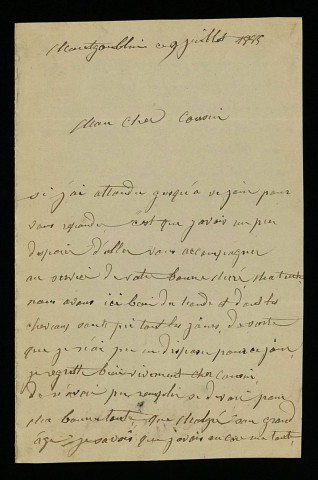 ce 9 juillet
Mon cher Cousin
si j'ai attendu jusqu'a ce jour pour
vous repondre, c'est que j'avais un peu
d'espoir d'aller vous accompagner
au service de votre bonne mère ma tante
nous avons ici du monde et dont les
chevaux sont pris tout les jours, de sorte
que je n'ai pu en disposer pour ce jour,
je regrette bien vivement cher Cousin,
de n'avoir pu remplir ce devoir pour
ma bonne tante, que malgré son grand
âge je savais que j'avais encore ma tante,